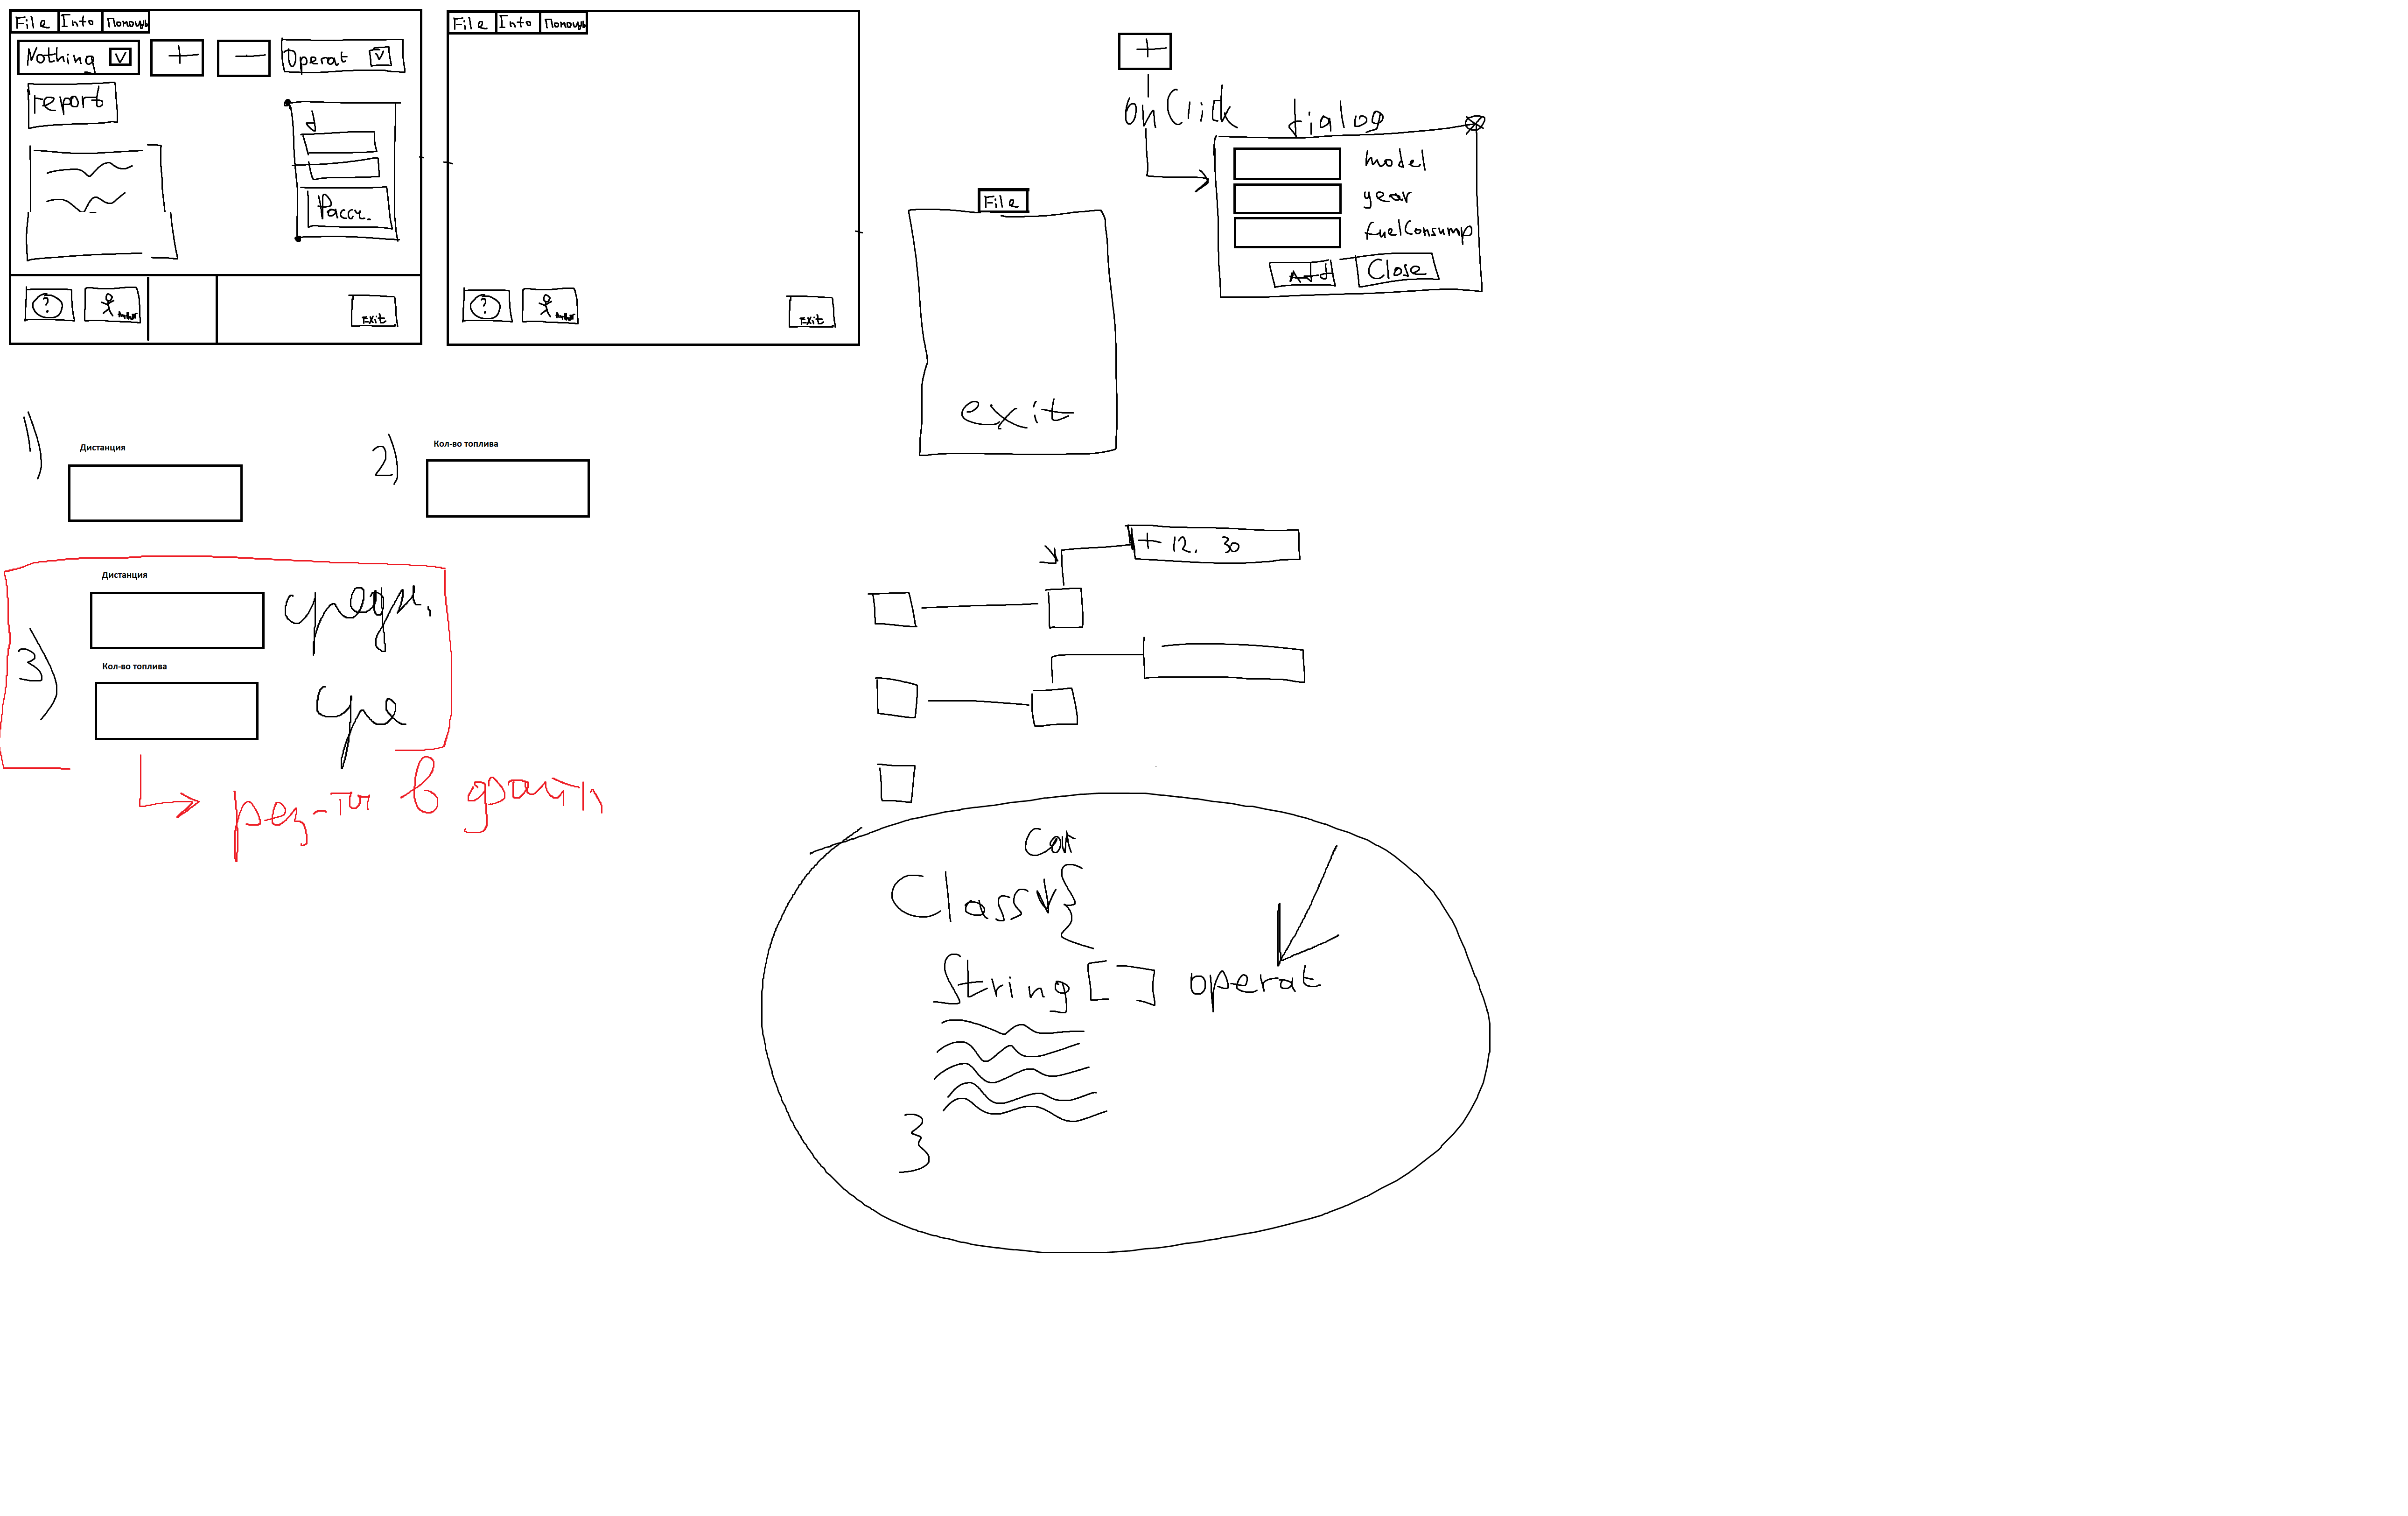 File Into Помощь
Nothing V + — Operat V
report
d
Рассч.
? Exit
File Into Помощь
? Exit
+
onClick dialog
model
year
fuelConsump
Add Close
File
exit
1) Дистанция
2) Кол-во топлива
3) Дистанция
средн.
Кол-во топлива
сре
рез-ты в файл
+ 12. 30
Car
Class {
String [ ] operat
}